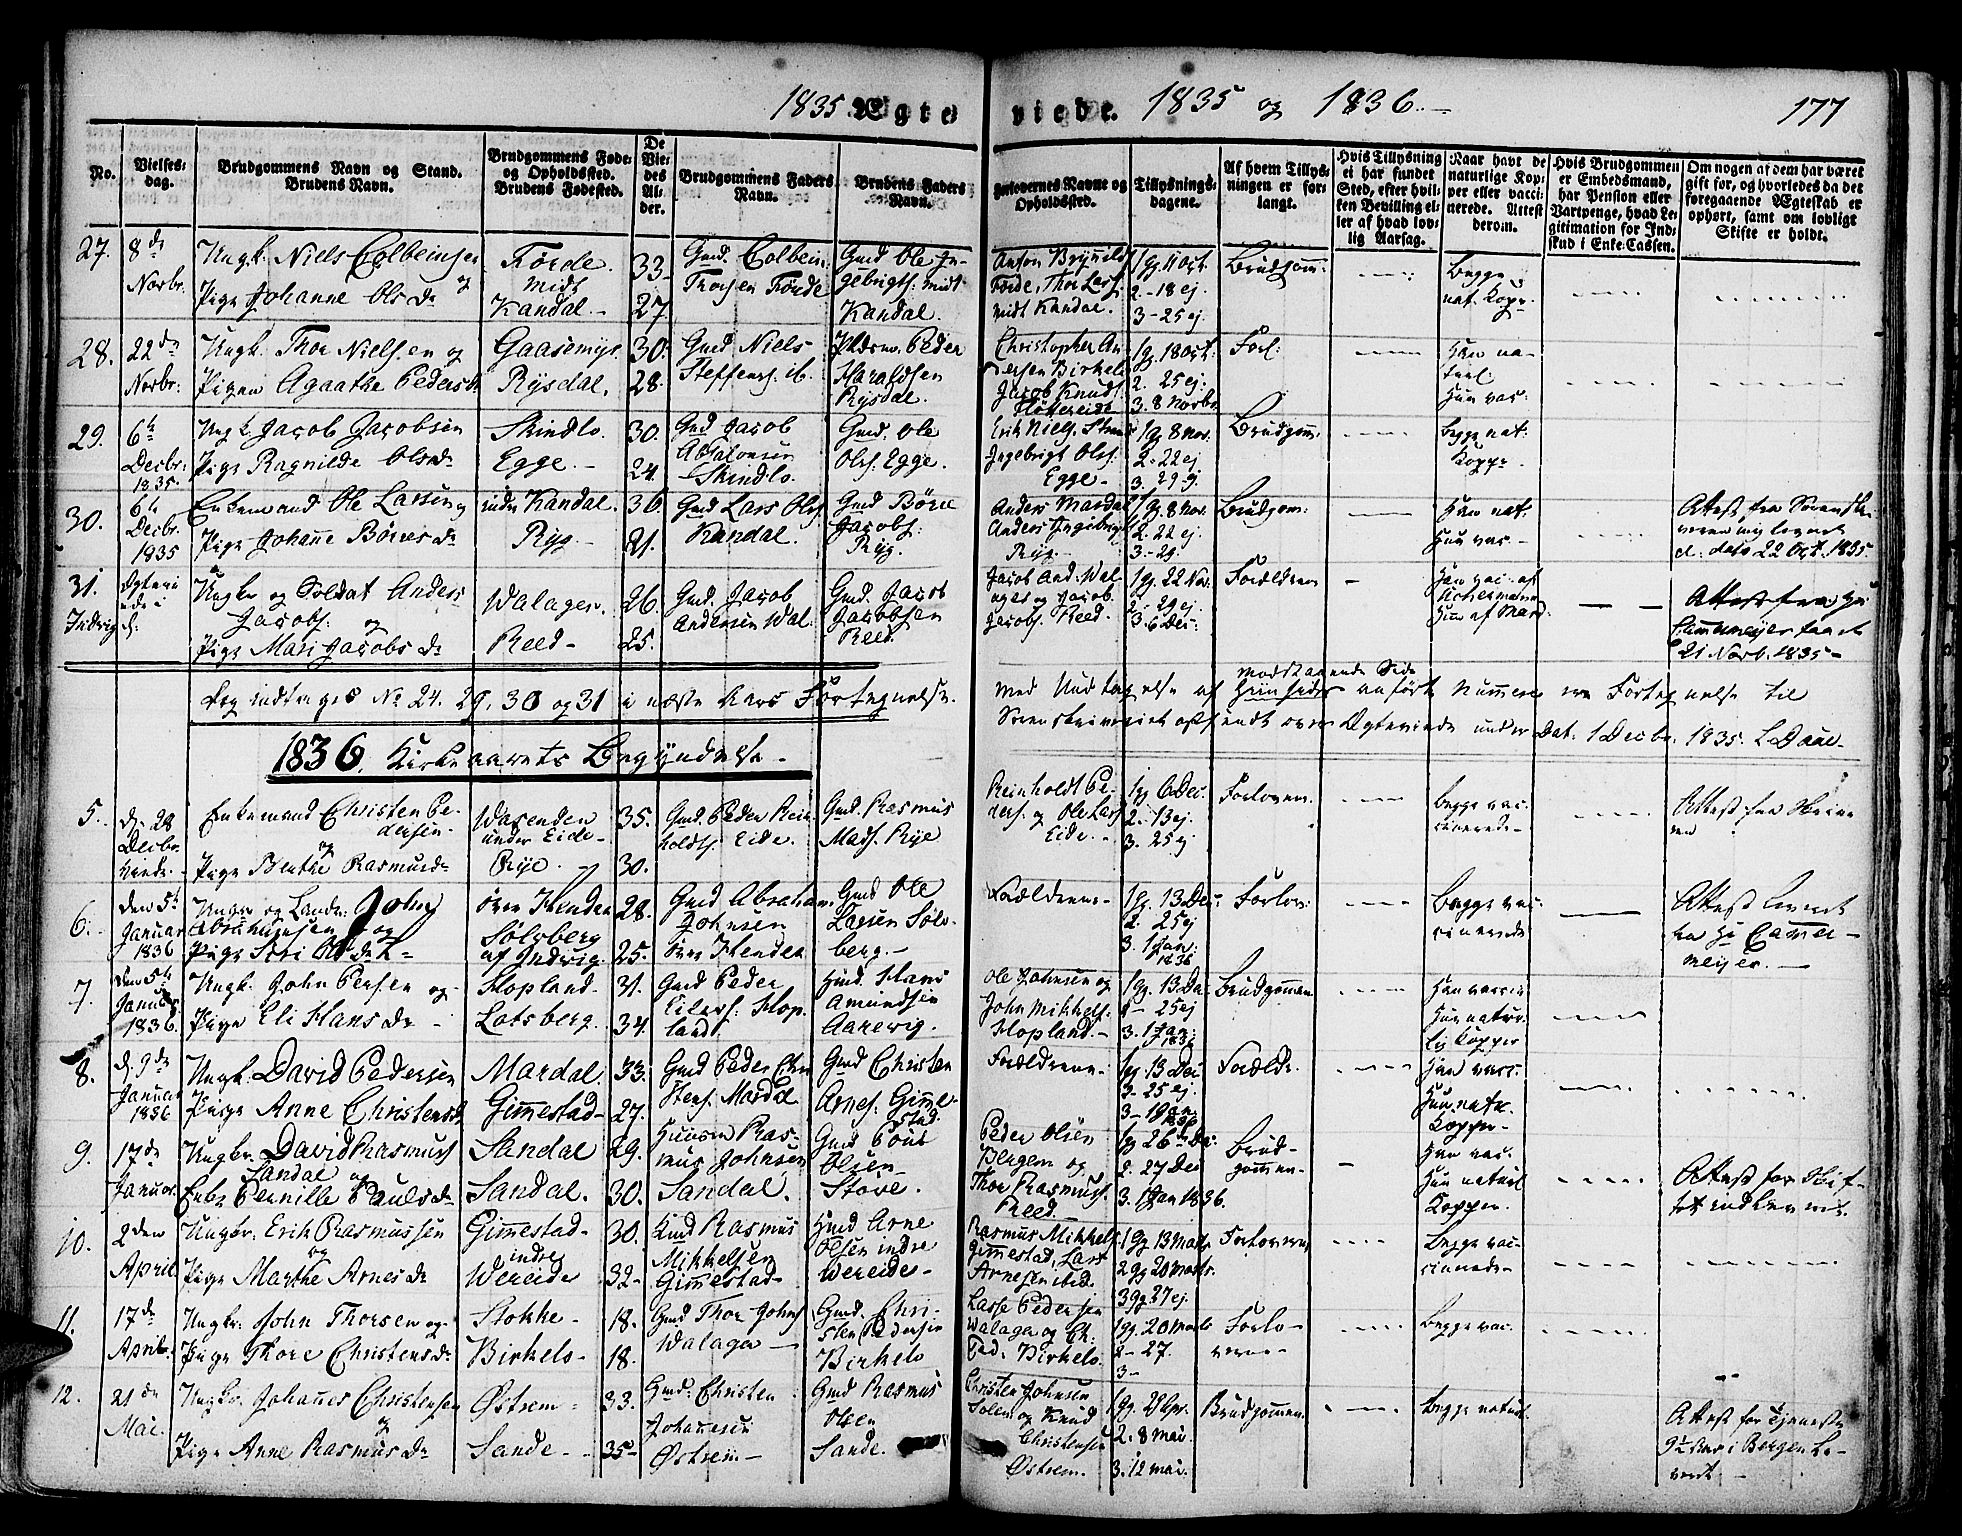 1835. Ægte viede. 1835 og 1836.
177
No.
Vielses-
dag.
Brudgommens Navn og Stand.
Brudens Navn.
Brudgommens Føde-
og Opholdssted.
Brudens Fødested.
De
Vie-
des
Al-
der.
Brudgommens Faders
Navn.
Brudens Faders
Navn.
Forlovernes Navne og
Opholdssted.
Tillysnings-
dagene.
Af hvem Tillys-
ningen er for-
langt.
Hvis Tillysning
ei har fundet
Sted, efter hvil-
ken Bevilling el-
ler af hvad lov-
lig Aarsag.
Naar havt de
naturlige Kop-
per eller vacci-
nerede. Attest
derom.
Hvis Brudgommen
er Embedsmand,
har Pension eller
Vartpenge, hvad Le-
gitimation for Ind-
skud i Enke-Cassen.
Om nogen af dem har været
gift før, og hvorledes da det
foregaaende Ægteskab er
ophørt, samt om lovligt
Skifte er holdt.
27. 8de Novbr. Ungk. Niels Colbeinsen og Pige Johanne Olsdr
Førde. midt Kandal. 33. 27.
Gmd. Colbein Thorsen Førde
Gmd Ole Ingebrigts. midt Kandal.
Førde, Thor Lars. midt Kandal.
1g. 11 Oct. 2 - 18 ej. 3 - 25 ej
Brudgom:
Begge nat. Kopr.
28. 22de Novbr: Ungk. Thor Nielsen og Pigen Agaathe Pedersdr
Gaasemyr. Rysdal. 30. 28.
Gmd. Niels Steffens. ib.
Peder Haraldsen Rysdal.
Christopher Andersen Birkelo Jacob Knuds. Fløttereide
1g. 18 Oct. 2. 25 ej. 3. 8 Novbr.
Forl:
Han naturl: Hun vac:
29. 6te Decbr. 1835. Ungk. Jacob Jacobsen Pige Ragnilde Olsdr
Skindlo. Egge. 30. 24.
Gmd Jacob Absalonsen Skindlo.
Gmd. Ole Ols. Egge.
Erik Niels. Ingebrigt Ols. Egge
1g. 8 Nov. 2 - 22 ej 3. 29
Brudgom:
begge nat: Kopr.
30. 6te Decbr. 1835 Enkemand Ole Larsen og Pige Johanne Børresdr
indre Kandal. Ryg. 36. 21.
Gmd Lars Ols. Kandal.
Gmd Børre Jacobs. Ryg.
Anders Mardal Anders Ingebrigts Ryg
1g. 8 Nov. 2. 22 ej. 3. - 29.
Brudgom:
Han nat: Hun vac.
dato 22 Oct. 1835.
31. Indvig Ungkr og Soldat Anders Jacobs. og Pige Mari Jacobsdr
Walager. Reed - 26. 25.
Gmd. Jacob Andersen Wal.
Gmd. Jacob Jacobsen Reed.
Jacob And. Walager og Jacob Jacobs. Reed.
1g. 22 Nov. 2. - 29 ej. 3. 6 Dec:
Forældrene
21 Novb. 1835 -
No 24. 29. 30 og 31 i næste Aars Fortegnelse.
Med Undtagelse af modstaaende Side anførte Nummere er Fortegnelse til
Sorenskriveriet afsendt over Ægteviede under Dat. 1 Decbr. 1835.
1836. Kirkeaarets Begyndelse.
5. d. 28 Decbr. Enkemand Christen Pedersen og Pige Benthe Rasmusdr
under Eide - Rye. 35. 30.
Gmd. Peder Reinholdts. Eide.
Gmd. Rasmus Mads. Rye
Reinholdt Peders. og Ole Lars Eide.
1g 6 Dec. 2. - 13 ej. 3. - 25 ej
Forloverne
begge vaccinerede -
6. den 5te Januar 1836 John Abrahamsen og Pige Siri Olsdr
øvre Hender Sølvberg af Indvig. 28. 25.
Gmd Abraham Johnsen øvre Hender
Gmd Ole Larsen Sølvberg -
Forældrene -
1g. 13 Dec. 2. 25 ej 3. 1 Jan: 1836
Forlov:
Begge vaccinerede
7. den 5te Januar 1836. Ungk. John Persen og Pige Eli Hansdr -
Hopland. Lotsberg. 31. 34.
Gmd Peder Eilers. Hopland
Gmd. Hans Amundsen Aarevig.
Ole Johnsen og John Mikkels. Hopland -
1g. 13 Dec. 2 - 25 ej 3. 1 Jan: 1836
Brudgommen
Han vaccin Hun naturlig Kopper
8. d. 9de Januar 1836 Ungk: David Pedersen Pige Anne Christensdr
Mardal. Gimmestad - 33. 27.
Gmd Peder Christens. Mardal
Gmd Christen Arnes. Gimmestad.
Forældrene -
1g 13 Dec 2 - 25 ej. 3 - 1 Jan. 1836
Forældr.
Han vacc: Hun natur. Kopper -
9. 17de Januar. Ungkr. David Rasmuss Sandal og Enke Pernille Paulsdr
Sandal Sandal. 29. 30.
Rasmus Johnsen Sandal.
Gmd Poul Olsen Støve.
Peder Olsen Bergem og Thor Rasmuss. Reed
1g 26de Dec: 2. 27 Dec 3. 1 Jan 1836.
Brudgommen -
Han vac. Hun naturl Kopper.
Attest for Skiftet indleveret.
10. 2den April Ungkr: Erik Rasmussen og Pige Marthe Arnesdr
Gimmestad - indre Wereide 30. 32 -
Gmd Rasmus Mikkelsen Gimmestad -
Gmd Arne Olsen indre Wereide -
Rasmus Mikkels Gimmestad, Lars Arnesen ibid.
1g 13 Marts 2g 20 Marts. 3g 27 ej.
Forloverne
Begge vaccinerede -
11. 17de April. Ungkr: John Thorsen og Pige Thore Christensdr
Stokke - Birkelo - 18. 18.
Gmd Thor Johns Walager -
Gmd. Christen Pedersen Birkelo
Lasse Pedersen Walager og Ch: Ped. Birkelo.
1g. 20 Marts 2 - 27. 3 -
Forloverne -
Begge vac.
12. 21de Mai. Ungkr. Johannes Christensen og Pige Anne Rasmusdr
Østrem - Sande - 33. 35 -
Gmd: Christen Johannesen Østrem -
Gmd Rasmus Olsen Sande.
Christen Johnsen Solem og Knud Christensen Østrem.
2. 8 Mai. 3. 12 Mai.
Brudgommen.
begge naturl.
Attest for Tjeneste i Bergen